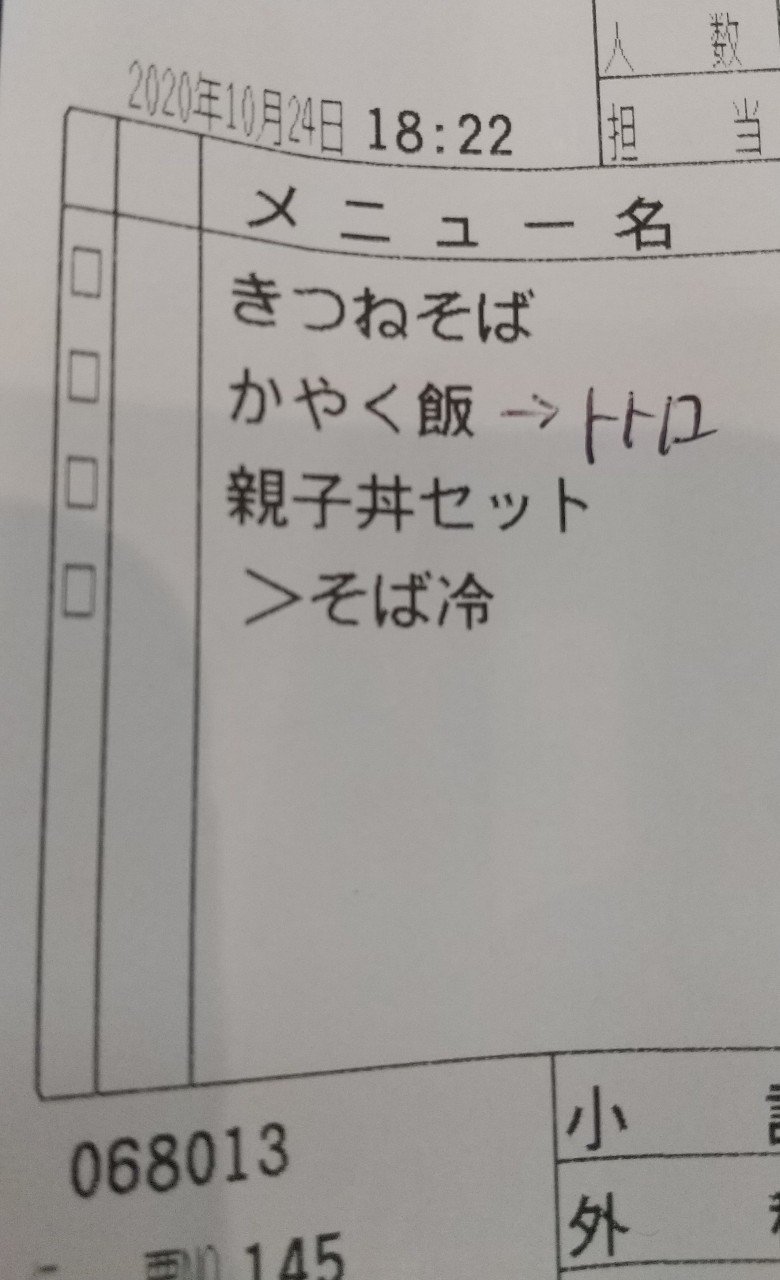 人数
2020年10月24日 18:22
担当
メニュー名
きつねそば
かやく飯 →トトロ
親子丼セット
>そば冷
小
068013
外
145